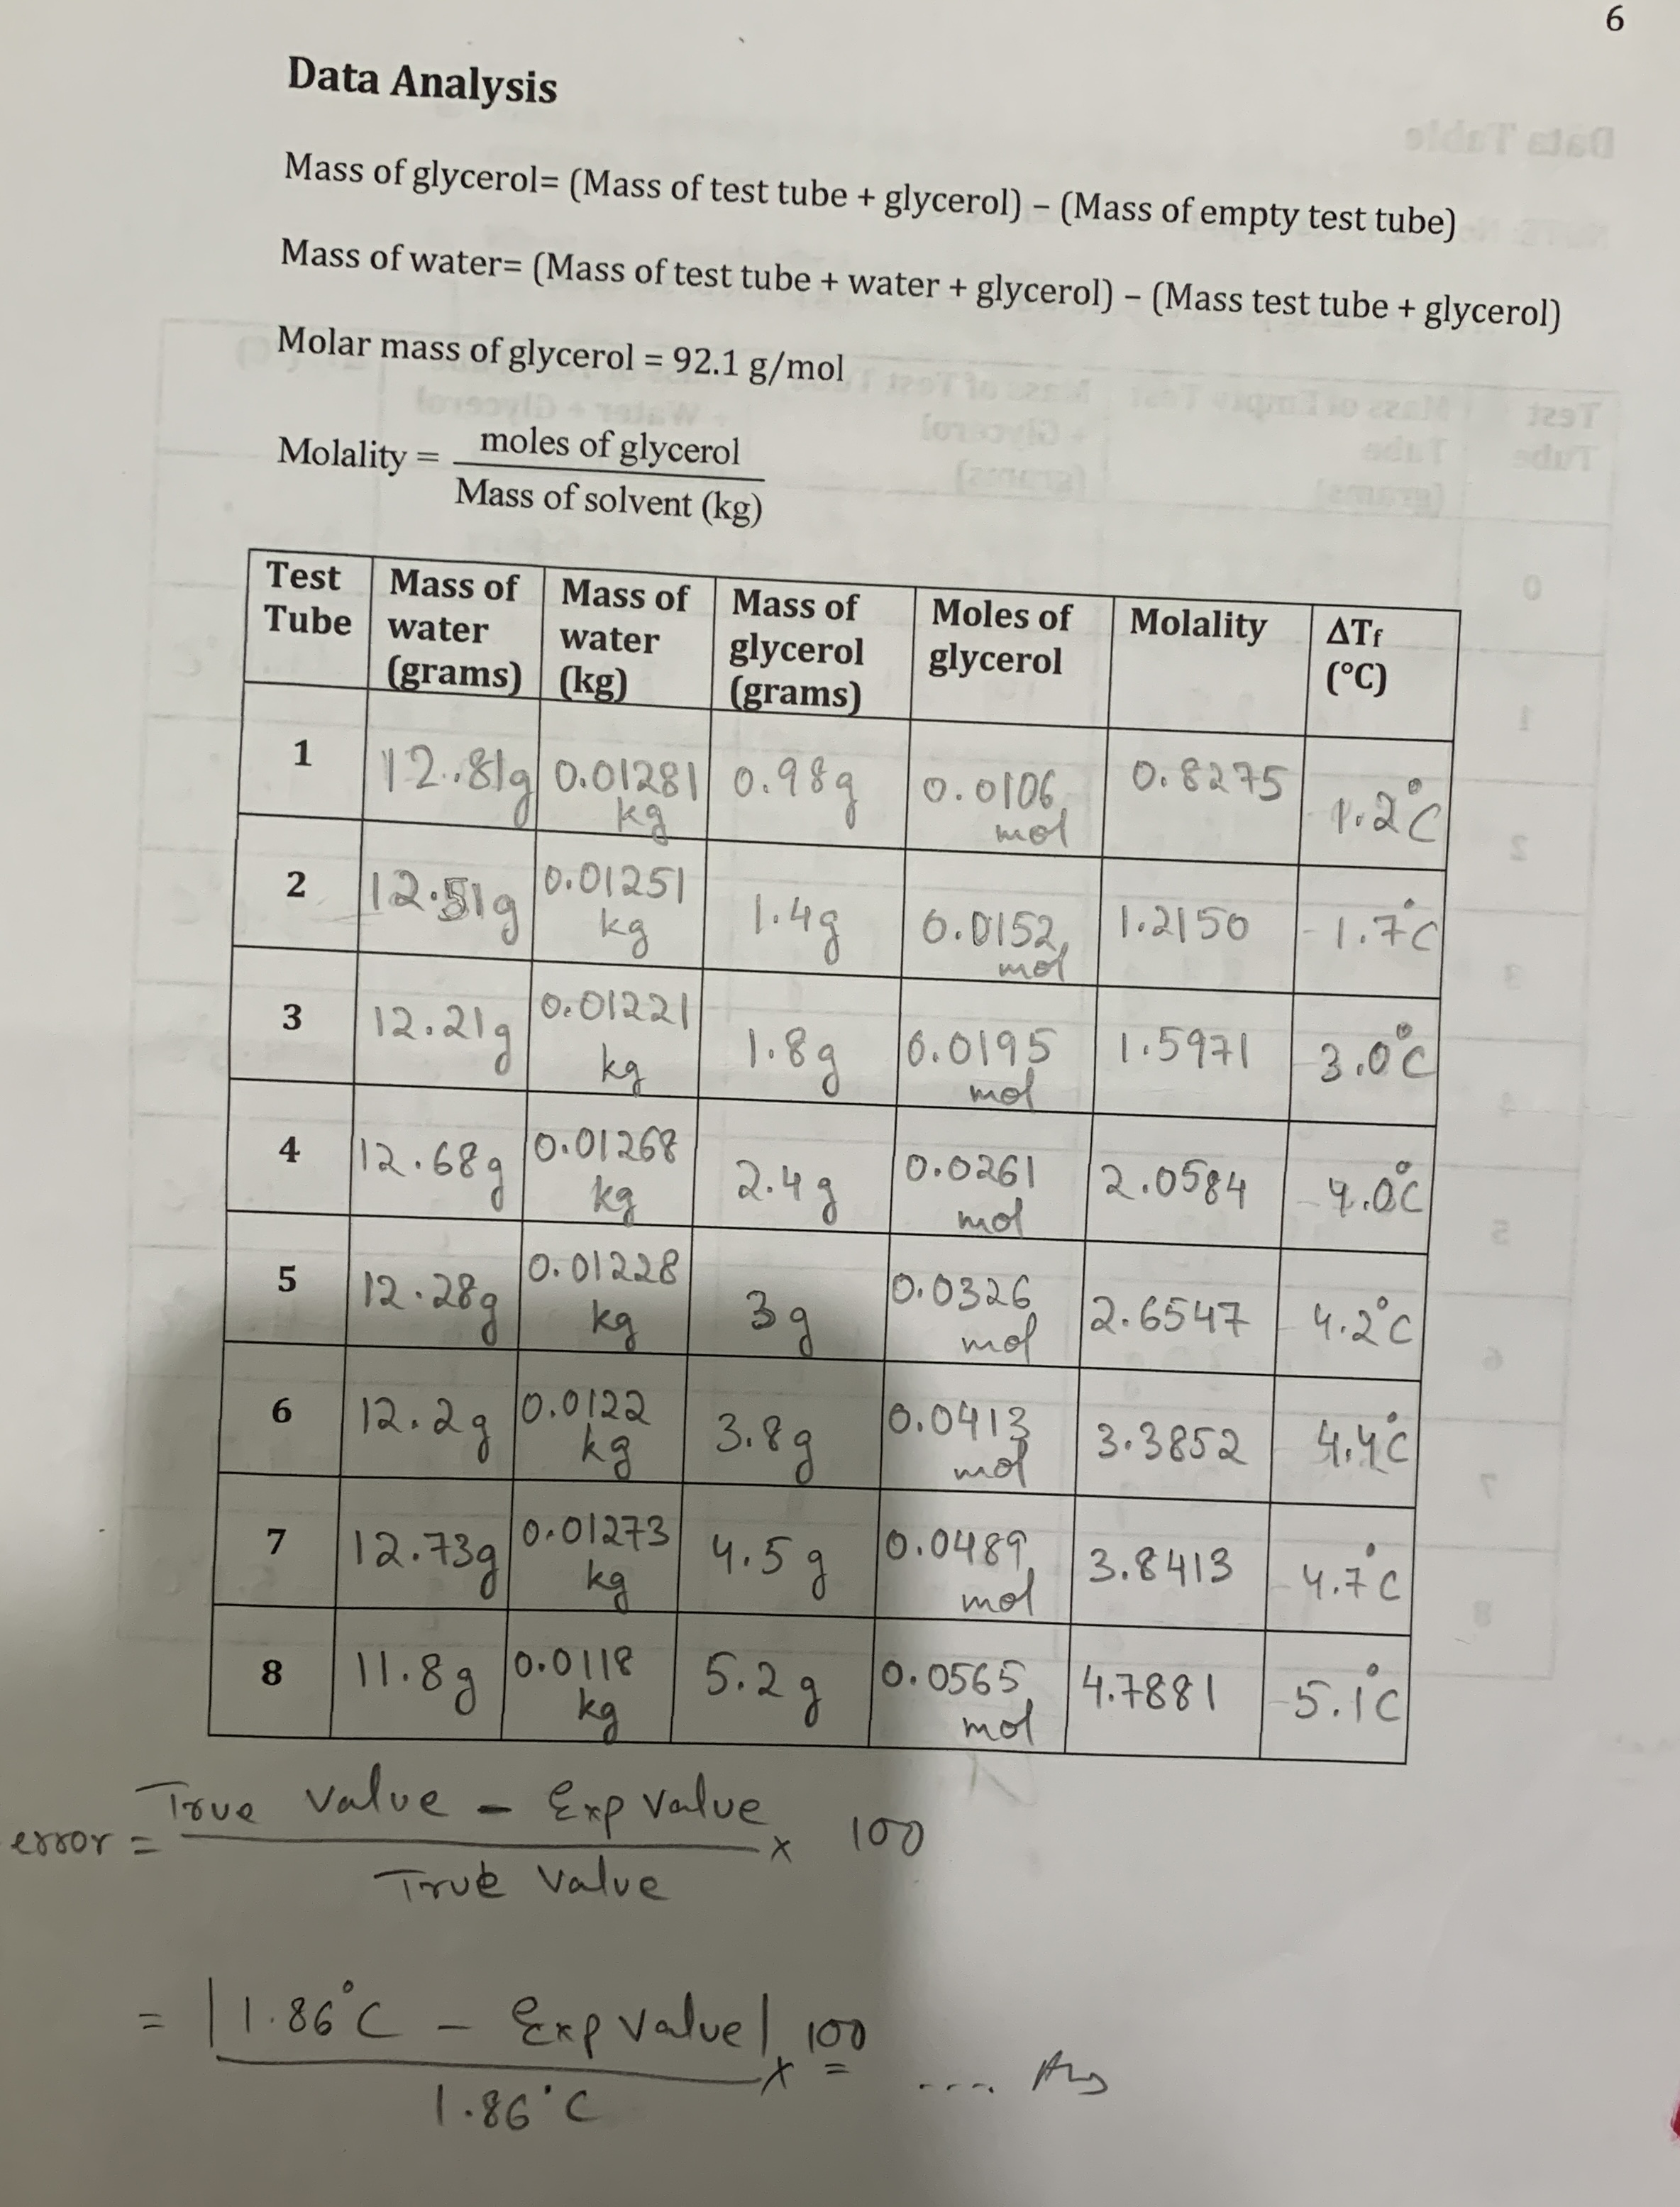 6
Data Analysis
Mass of glycerol= (Mass of test tube + glycerol) – (Mass of empty test tube)
Mass of water= (Mass of test tube + water + glycerol) – (Mass test tube + glycerol)
Molar mass of glycerol = 92.1 g/mol
Molality = moles of glycerol
Mass of solvent (kg)
Test Tube Mass of water (grams) Mass of water (kg) Mass of glycerol (grams) Moles of glycerol Molality ΔTf (°C)
1 12.81g 0.01281 kg 0.98g 0.0106 mol 0.8275 1.2°C
2 12.51g 0.01251 kg 1.4g 0.0152 mol 1.2150 1.7°C
3 12.21g 0.01221 kg 1.8g 0.0195 mol 1.5971 3.0°C
4 12.68g 0.01268 kg 2.4g 0.0261 mol 2.0584 4.0°C
5 12.28g 0.01228 kg 3g 0.0326 mol 2.6547 4.2°C
6 12.2g 0.0122 kg 3.8g 0.0413 mol 3.3852 4.4°C
7 12.73g 0.01273 kg 4.5g 0.0489 mol 3.8413 4.7°C
8 11.8g 0.0118 kg 5.2g 0.0565 mol 4.7881 5.1°C
error = True value - Exp value x 100
True value
= |1.86°C - Exp value| x 100 = .... Ans
1.86°C